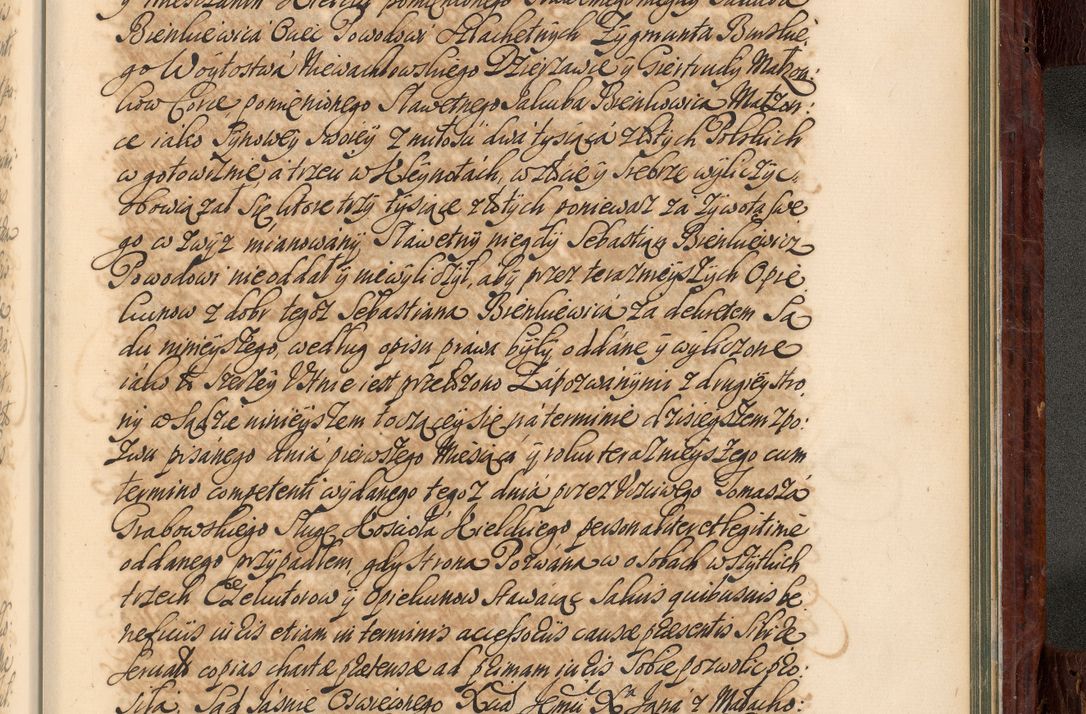 Bienkiewica Oyiec Powodowi Szlachetnych Zygmunta Burskie
go Woytostwa Niewachlowskiego Dzierzawce y Giertrudy Małzon:
kow Corce pomienionego Sławetnego Jakuba Bienkowica Małzon:
ce iako Synowey swoiey z miłosci dwa tysiąca złotych Polskich
w gotowiznie a trzeci w Kleynotach, w złocie y srebrze wyliczyc
obowiązał się ktore trzy tysiące złotych poniewasz za zywota swe
go w zwyz mianowany Sławetny niegdy Sebastian Bienkiewicz
Powodowi nieoddał y niewyliczył, aby przez teraznieyszych Opie
kunow z dobr tegoz Sebastiana Bienkiewica za dekretem Są
du ninieyszego, według opisu prawa były oddane y wyliczone
iako szerzey ustnie iest przełozono Zapozwanymi z drugiey stro
ny w Sądzie ninieyszem toczącey się na terminie dzisieyszem z po:
zwu pisanego dnia pierwszego Miesiąca y roku teraznieyszego cum
termino competenti wydanego tegoz dnia przez Uczciwego Tomasza
Grabowskiego Sługę Koscioła Kielckiego personaliter et legitime
oddanego przypadłem, gdy strona Pozwana w osobach wszytkich
trzech Exekutorow y Opiekunow stawaiąc Salvis quibusvis be
neficiis iuris etiam in terminis accessoriis causæ præsentis sibi re
servatis copias chartæ prætensæ ad primam iuris Sobie pozwolic pro
siła. Sąd Jasnie Oswieconego Xcia Jemci Xa Jana z Małacho: